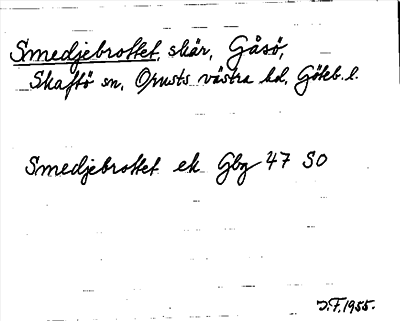 Smedjebrottet, skär, Gåsö,
Skaftö sn, Orusts västra hd, Göteb. l.
Smedjebrottet ek Gbg 47 SO
J.F. 1955.